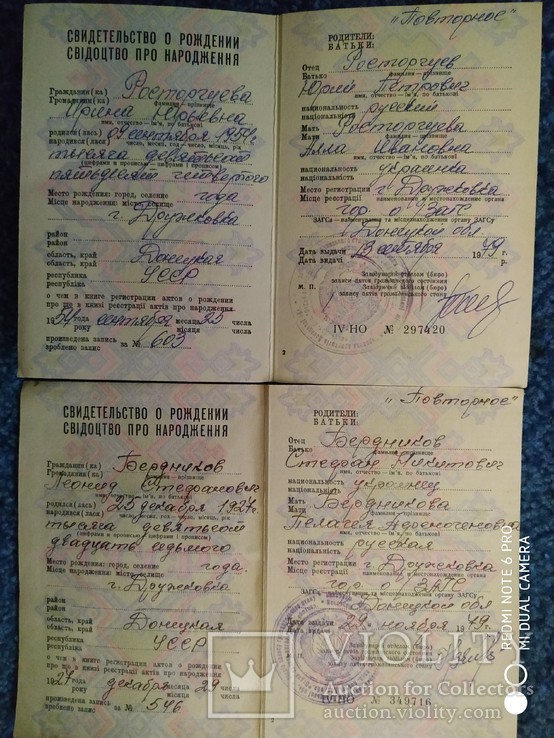 СВИДЕТЕЛЬСТВО О РОЖДЕНИИ
СВІДОЦТВО ПРО НАРОДЖЕННЯ
Гражданин(ка) Расторгуева
Громадянин(ка)
фамилия — прізвище
Ирина Юрьевна
имя, отчество — ім'я, по батькові
родился (лась) 04 сентября 1954г.
народився (лась) число, месяц, год — число, місяць, рік
тысяча девятьсот
(цифрами и прописью) — (цифрами і прописом)
пятьдесят четвертого
года
Место рождения: город, селение
Місце народження: місто, селище
г. Дружковка
район
район
область, край Донецкая
область, край
республика УССР
республіка
о чем в книге регистрации актов о рождении
про що в книзі реєстрації актів про народження
1954 года сентября месяца 23 числа
року місяця числа
произведена запись
зроблено запис за № 603
"Повторное"
РОДИТЕЛИ:
БАТЬКИ:
Отец Расторгуев
Батько
фамилия — прізвище
Юрий Петрович
имя, отчество — ім'я, по батькові
национальность русский
національність
Мать Расторгуева
Мати
фамилия — прізвище
Алла Ивановна
имя, отчество — ім'я, по батькові
национальность украинка
національність
Место регистрации г. Дружковка
Місце реєстрації
наименование и местонахождение органа
гор. ЗАГС
ЗАГСа — найменування та місцезнаходження органу ЗАГСу
Донецкой обл.
Дата выдачи 13 сентября 1979 г.
Дата видачі р.
М. П.
Заведующий отделом (бюро)
записи актов гражданского состояния
Завідуючий відділом (бюро)
запису актів громадянського стану
IV-НО № 297420
2
СВИДЕТЕЛЬСТВО О РОЖДЕНИИ
СВІДОЦТВО ПРО НАРОДЖЕННЯ
Гражданин(ка) Бердников
Громадянин(ка)
фамилия — прізвище
Леонид Стефанович
имя, отчество — ім'я, по батькові
родился (лась) 25 декабря 1927г.
народився (лась) число, месяц, год — число, місяць, рік
тысяча девятьсот
(цифрами и прописью) — (цифрами і прописом)
двадцать седьмого
года.
Место рождения: город, селение
Місце народження: місто, селище
г. Дружковка
район
район
область, край Донецкая
область, край
республика УССР
республіка
о чем в книге регистрации актов о рождении
про що в книзі реєстрації актів про народження
1927 года декабря месяца 29 числа
року місяця числа
произведена запись
зроблено запис за № 546
"Повторное"
РОДИТЕЛИ:
БАТЬКИ:
Отец Бердников
Батько
фамилия — прізвище
Стефан Никитович
имя, отчество — ім'я, по батькові
национальность украинец
національність
Мать Бердникова
Мати
фамилия — прізвище
Пелагея
имя, отчество — ім'я, по батькові
национальность русская
національність
Место регистрации г. Дружковка
Місце реєстрації
наименование и местонахождение органа
гор. ЗАГС
Донецкой обл
Дата выдачи 29 ноября 1979 г.
Дата видачі
IV-НО № 349716
REDMI NOTE 6 PRO
MI DUAL CAMERA
VIOLITY
Auction for Collectors
auction.violity.com